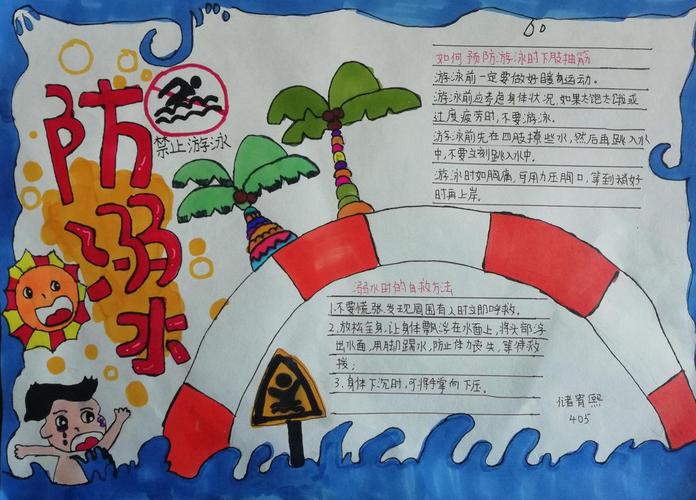 防溺水
禁止游泳
如何预防游泳时下肢抽筋
游泳前一定要做好暖身运动。
游泳前应考虑身体状况,如果太饱太饿或
过度疲劳时,不要游泳。
游泳前先在四肢撩些水,然后再跳入水
中,不要立刻跳入水中。
游泳时如胸痛,可用力压胸口,等到稍好
时再上岸。
溺水时的自救方法
1.不要慌张,发现周围有人时立即呼救。
2.放松全身,让身体飘浮在水面上,将头部浮
出水面,用脚踢水,防止体力丧失,等待救
援;
3.身体下沉时,可将手掌向下压。
储宵熙
405